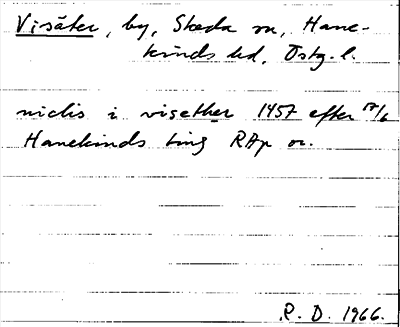 Visäter, by, Skeda sn, Hane-
kinds hd, Östg. l.
niclis i visether 1457 efter 17/6
Hanekinds ting RAp or.
R. D. 1966.